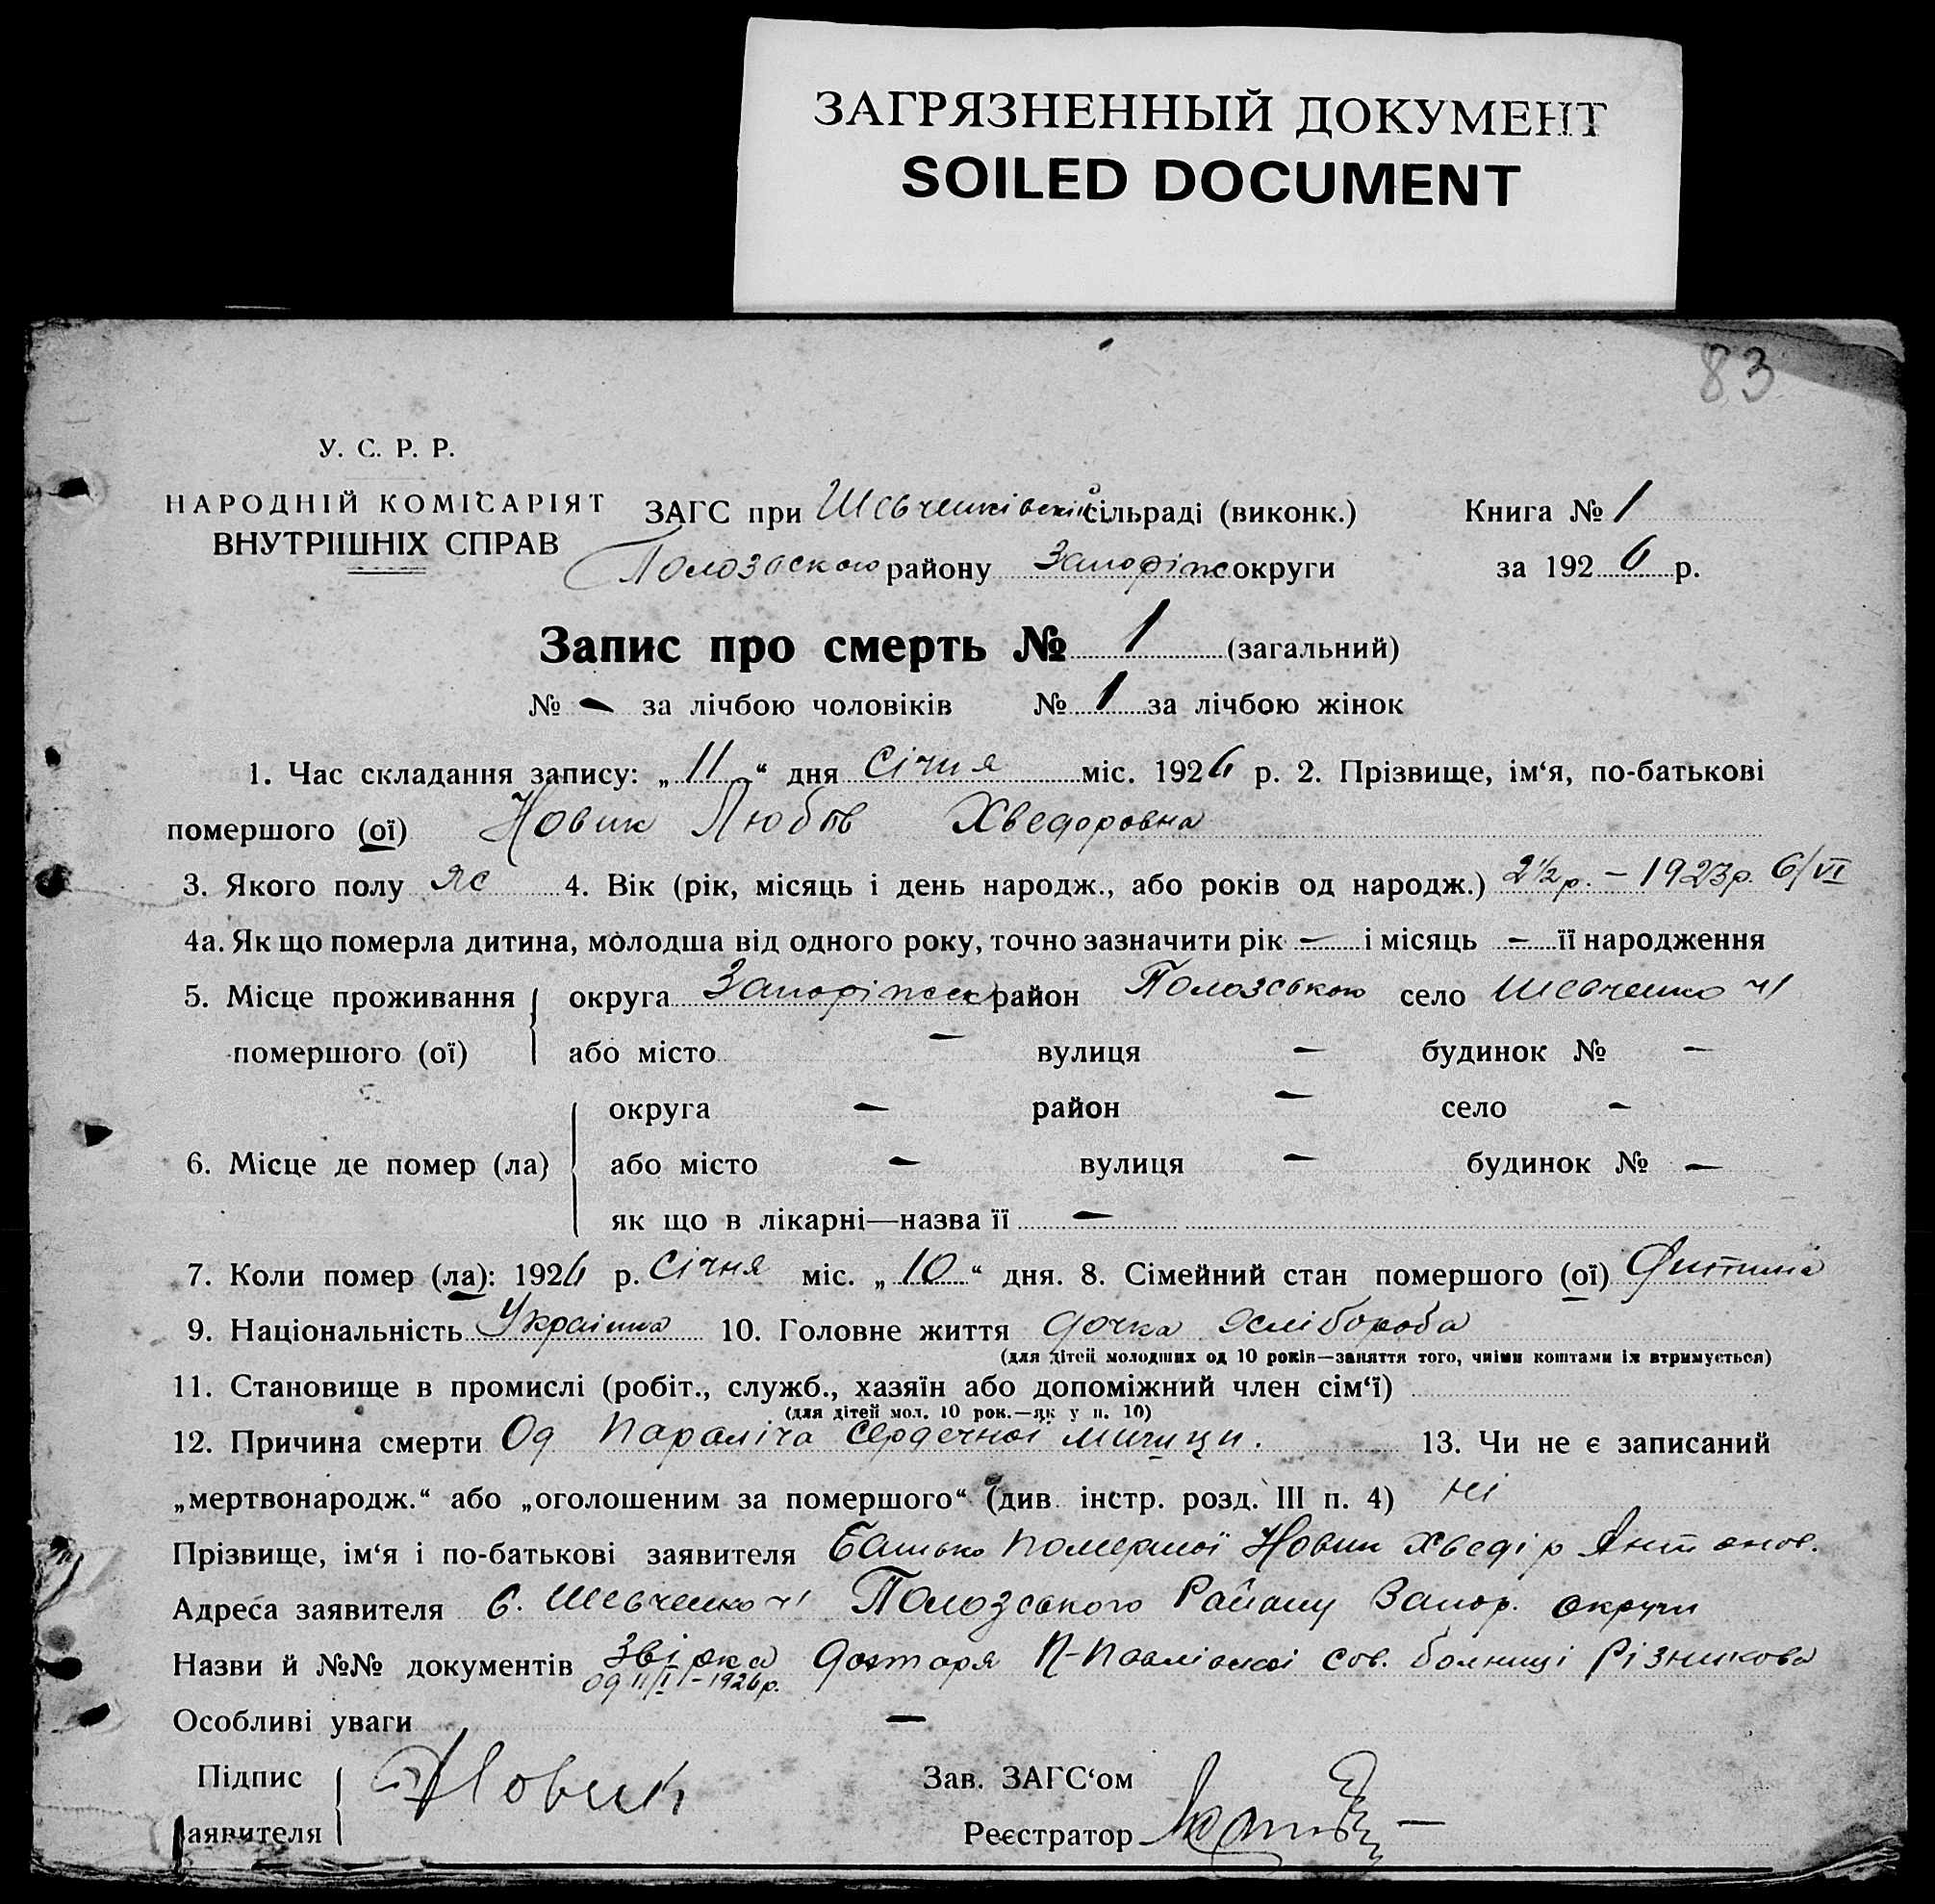 ЗАГРЯЗНЕННЫЙ ДОКУМЕНТ
SOILED DOCUMENT
83
У. С. Р. Р.
НАРОДНІЙ КОМІСАРІЯТ
ВНУТРІШНІХ СПРАВ
ЗАГС при Шевченківській сільраді (виконк.) Книга № 1
Полозського району Запоріж округи за 1926 р.
Запис про смерть № 1 (загальний)
№ - за лічбою чоловіків № 1 за лічбою жінок
1. Час складання запису: „11“ дня Січня міс. 1926 р. 2. Прізвище, ім‘я, по-батькові
помершого (ої) Новик Любов Хведоровна
3. Якого полу ж 4. Вік (рік, місяць і день народж., або років од народж.) 2½ р. – 1923р. 6/VI
4а. Як що померла дитина, молодша від одного року, точно зазначити рік - і місяць - її народження
5. Місце проживання округа Запоріжськ район Полозського село Шевченко ч1
помершого (ої) або місто - вулиця - будинок № -
округа - район - село -
6. Місце де помер (ла) або місто - вулиця - будинок № -
як що в лікарні—назва її -
7. Коли помер (ла): 1926 р. Січня міс. „10“ дня. 8. Сімейний стан помершого (ої) Дитина
9. Національність Українка 10. Головне життя дочка хлібороба
(для дітей молодших од 10 років—заняття того, чиїми коштами їх втримується)
11. Становище в промислі (робіт., служб., хазяїн або допоміжний член сім‘ї)
(для дітей мол. 10 рок.—як у п. 10)
12. Причина смерти Од параліча сердечної мишци. 13. Чи не є записаний
„мертвонародж.“ або „оголошеним за помершого“ (див. інстр. розд. III п. 4) ні
Прізвище, ім‘я і по-батькові заявителя Батько помершої Новик Хведір Антонов.
Адреса заявителя С. Шевченко ч1 Полозського Району Запор. округи
Назви й №№ документів Звірка доктаря П-Павлівської сов. больниці Різникова
од 11/I-1926р.
Особливі уваги -
Підпис Новик Зав. ЗАГС‘ом
аявителя Реєстратор